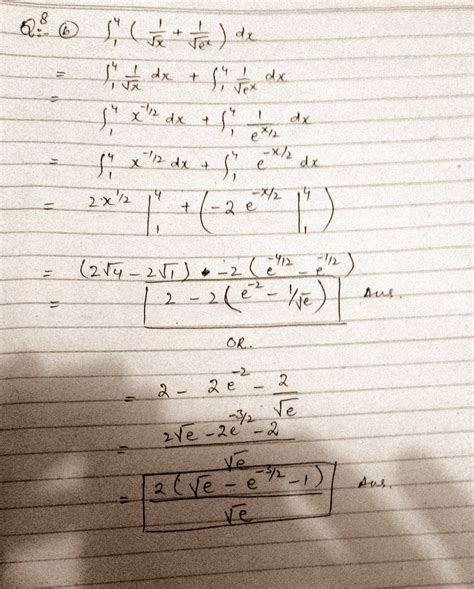 Q:-8 (b) ∫₁⁴ ( 1/√x + 1/√eˣ ) dx
= ∫₁⁴ 1/√x dx + ∫₁⁴ 1/√eˣ dx
= ∫₁⁴ x^(-1/2) dx + ∫₁⁴ 1/e^(x/2) dx
= ∫₁⁴ x^(-1/2) dx + ∫₁⁴ e^(-x/2) dx
= 2x^(1/2) |₁⁴ + (-2 e^(-x/2) |₁⁴)
= (2√4 - 2√1) • -2 (e^(-4/2) - e^(-1/2))
= 2 - 2(e^(-2) - 1/√e) Ans.
OR.
= 2 - 2e^(-2) - 2/√e
= (2√e - 2e^(-3/2) - 2)/√e
= 2(√e - e^(-3/2) - 1)/√e Ans.